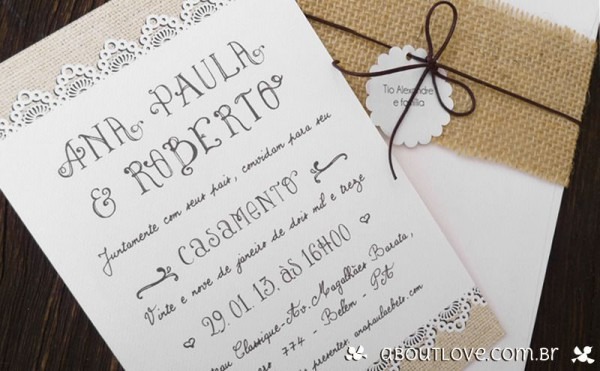 ANA PAULA
& ROBERTO
Juntamente com seus pais, convidam para seu
CASAMENTO
Vinte e nove de janeiro de dois mil e treze
29.01.13. às 16H00
Classique-Av. Magalhães Barata,
774 - Belém - PA
presentes: anapaulaebeto.com
Tio Alexandre
e família
aboutlove.com.br